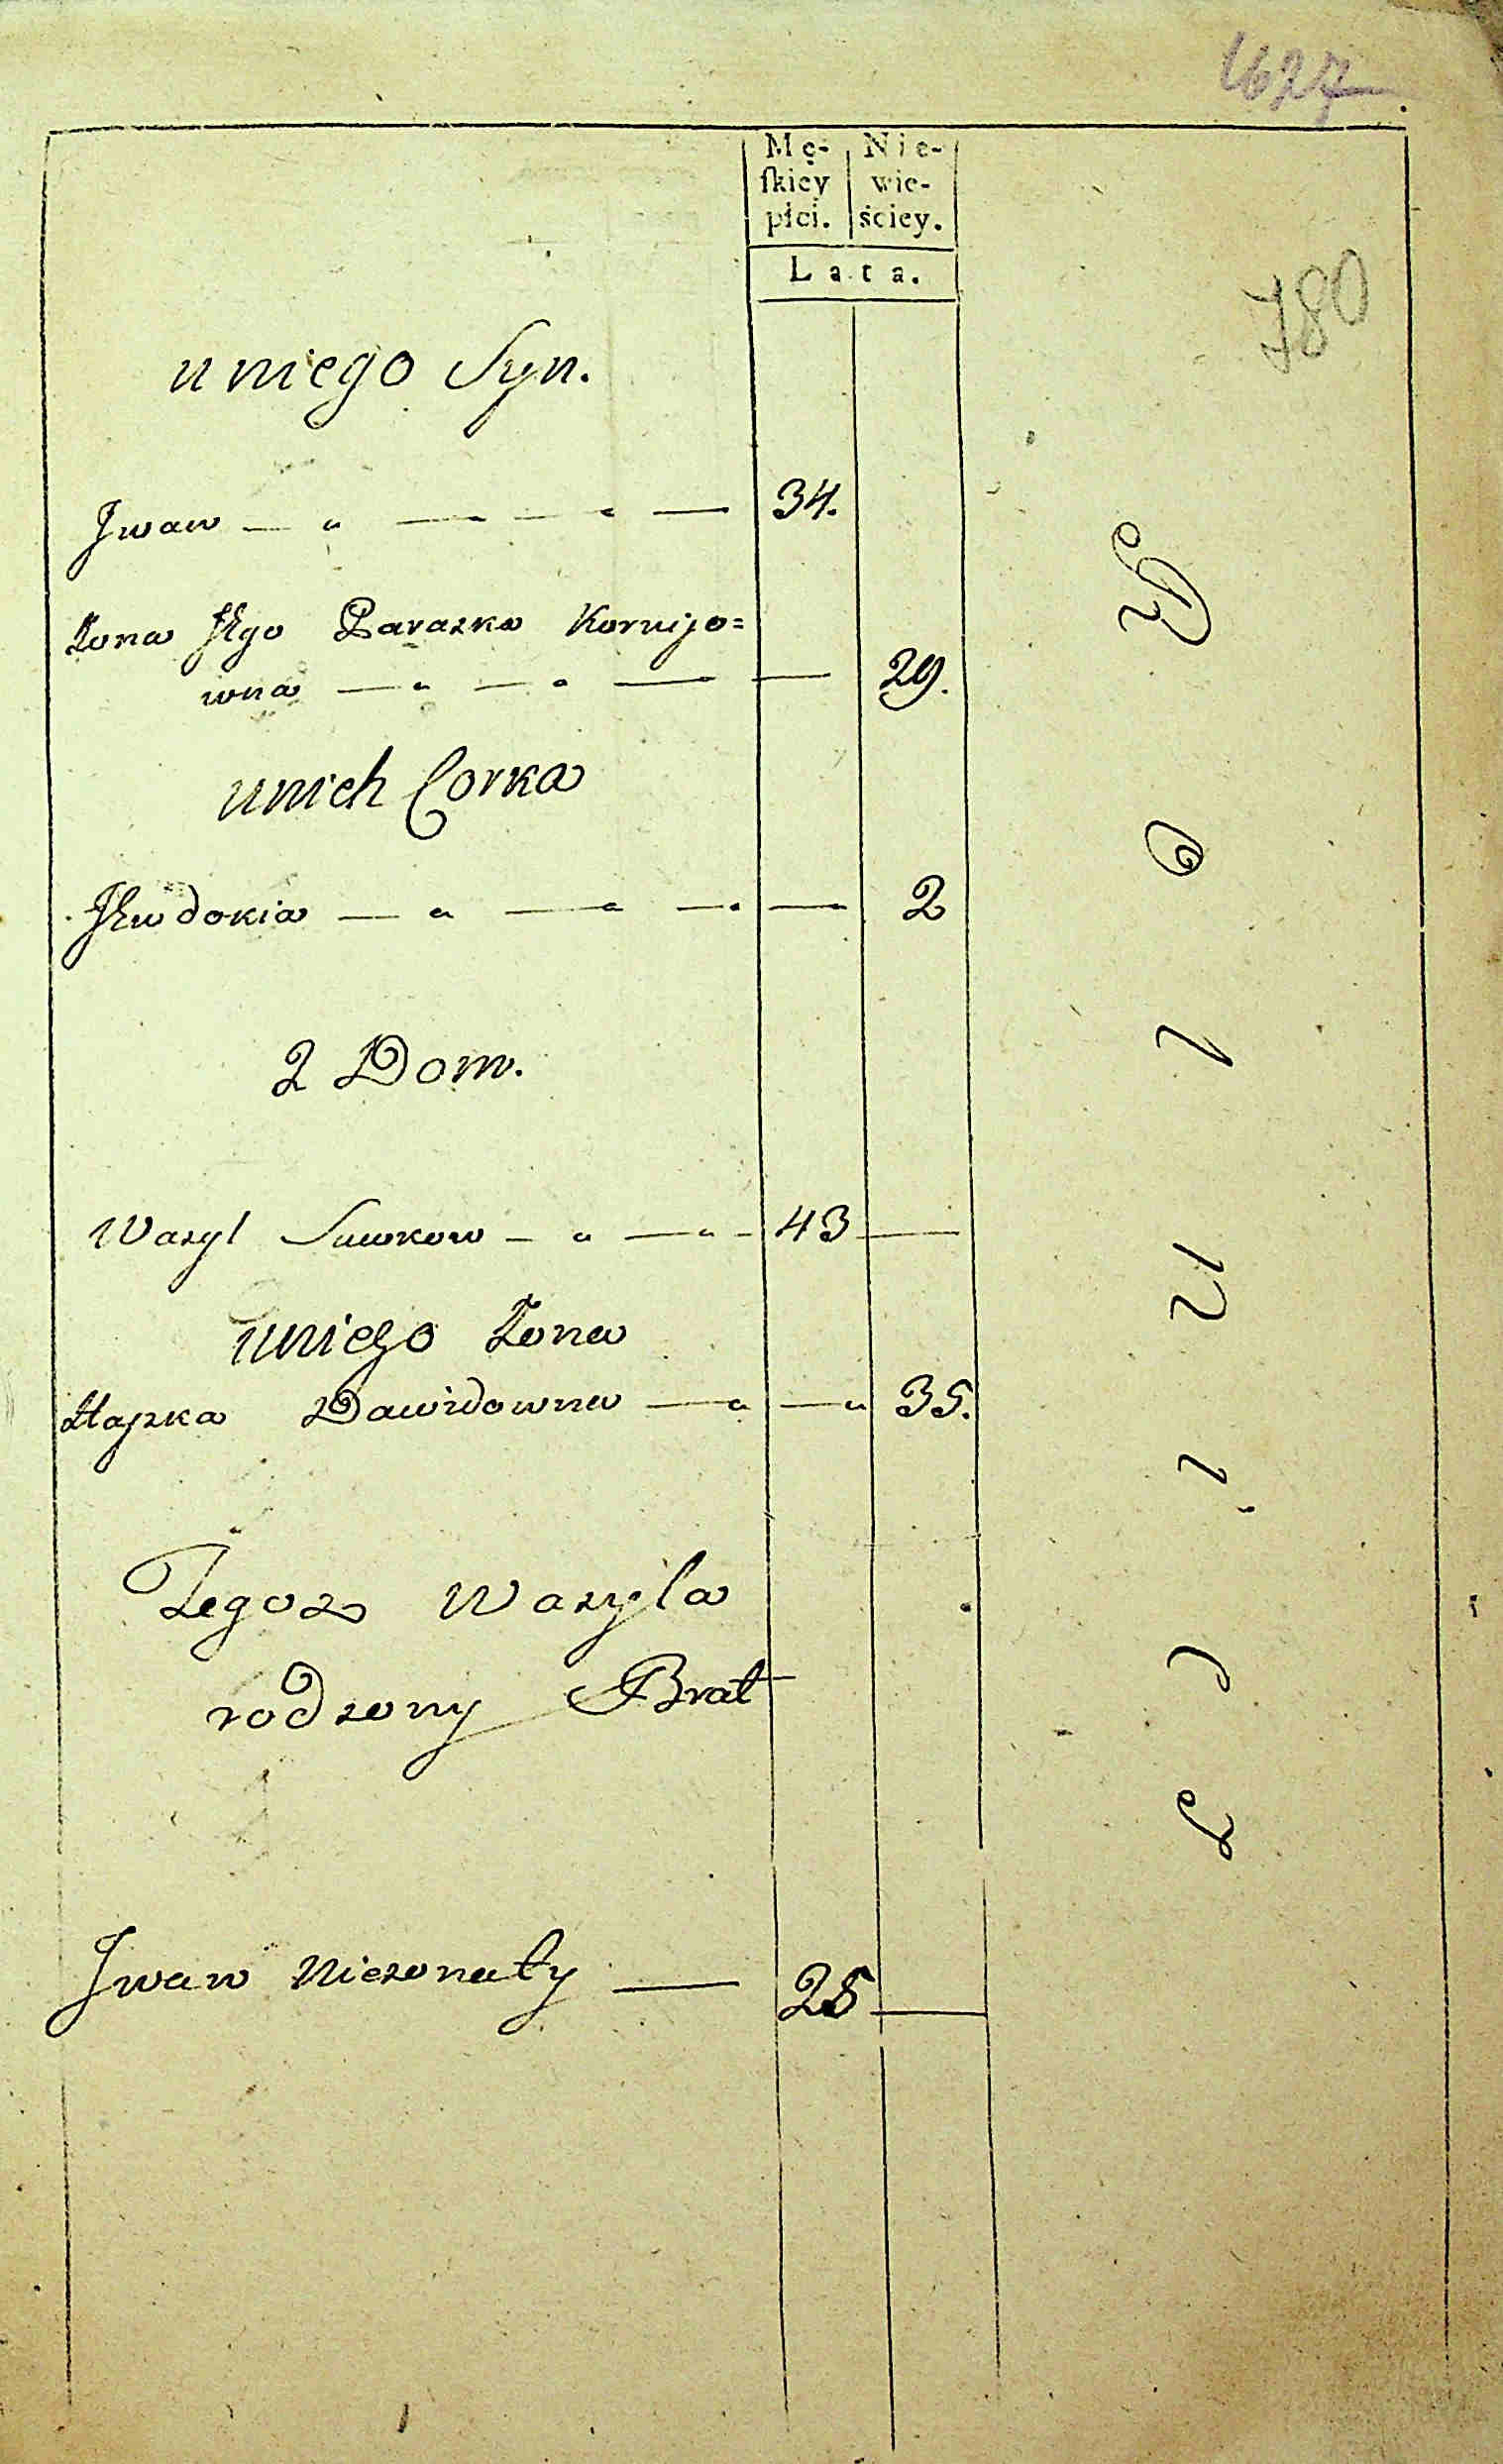 1627
Mę- Nie-
ſkiey wie-
płci. ściey.
Lata.
780
u niego Syn.
Jwan — „ — — — 34.
Zona Jego Paraska Kornijo=
wna — „ — „ — — 29.
u nich Corka
Jewdokia — „ — — — 2
2 Dom.
Wasyl — „ — „ - 43 —
u niego Zona
Hapka Dawidowna — „ — „ 35.
Tegoz Wasyla
rodzony Brat
Jwan Niezonaty — 25 —